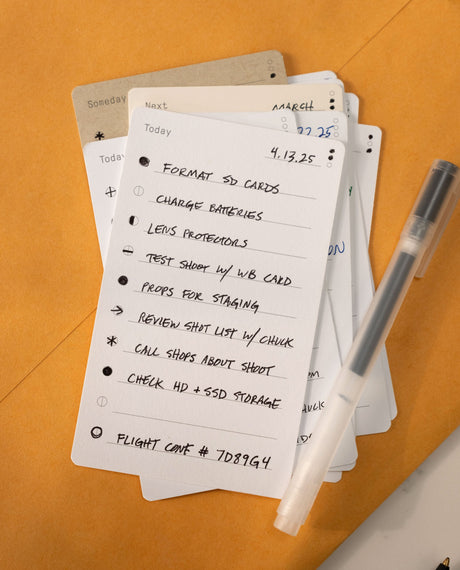 Someday
Next
MARCH
22.25
Today
Today
4.13.25
FORMAT SD CARDS
CHARGE BATTERIES
LENS PROTECTORS
TEST SHOOT W/ WB CARD
PROPS FOR STAGING
REVIEW SHOT LIST W/ CHUCK
CALL SHOPS ABOUT SHOOT
CHECK HD + SSD STORAGE
FLIGHT CONF # 7D89G4
ON
HUCK